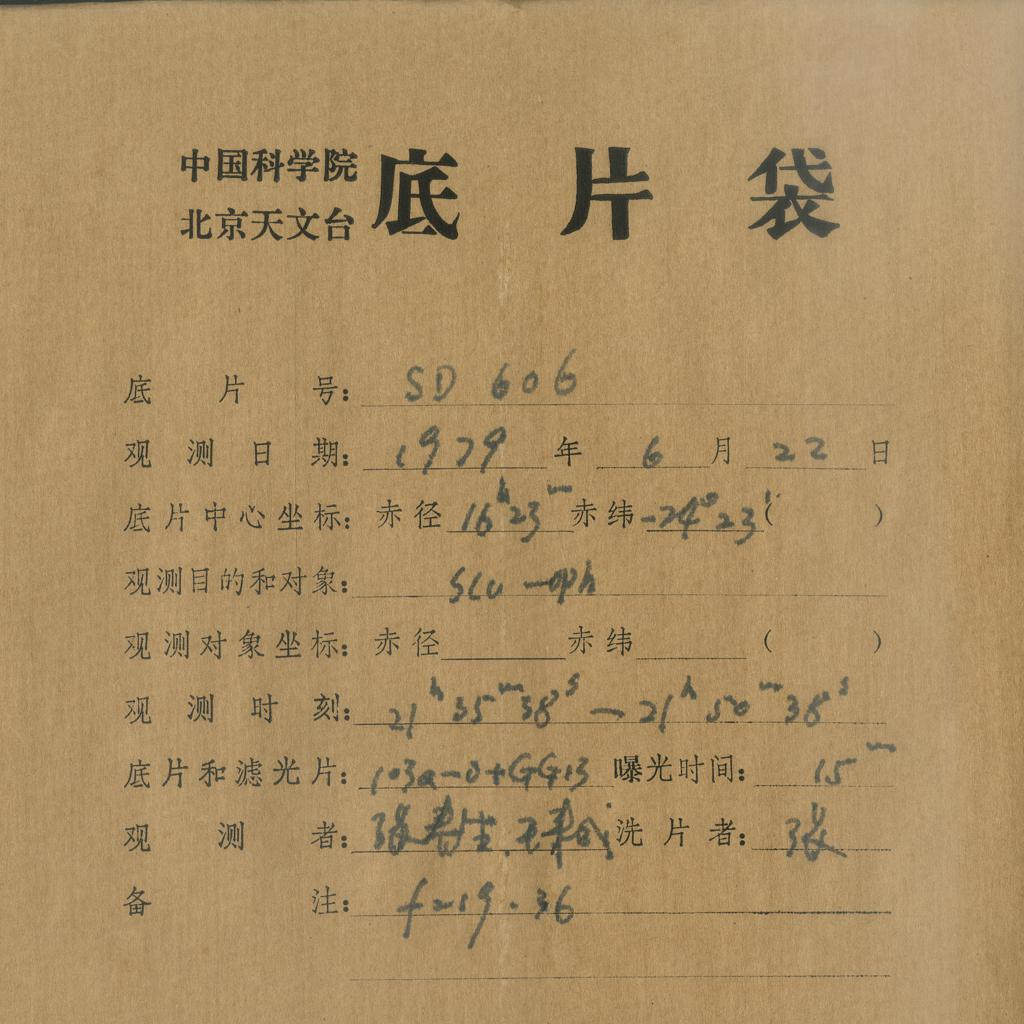 中国科学院
北京天文台
底片袋
底片号: SD 606
观测日期: 1979年 6月 22日
底片中心坐标: 赤径 16h23m 赤纬 -24°23′( )
观测目的和对象: Scu-oph
观测对象坐标: 赤径 赤纬 ( )
观测时刻: 21h35m38s — 21h50m38s
底片和滤光片: 103a-O+GG13 曝光时间: 15m
观测者: 张春生. 洗片者: 张
备注: f=19.36